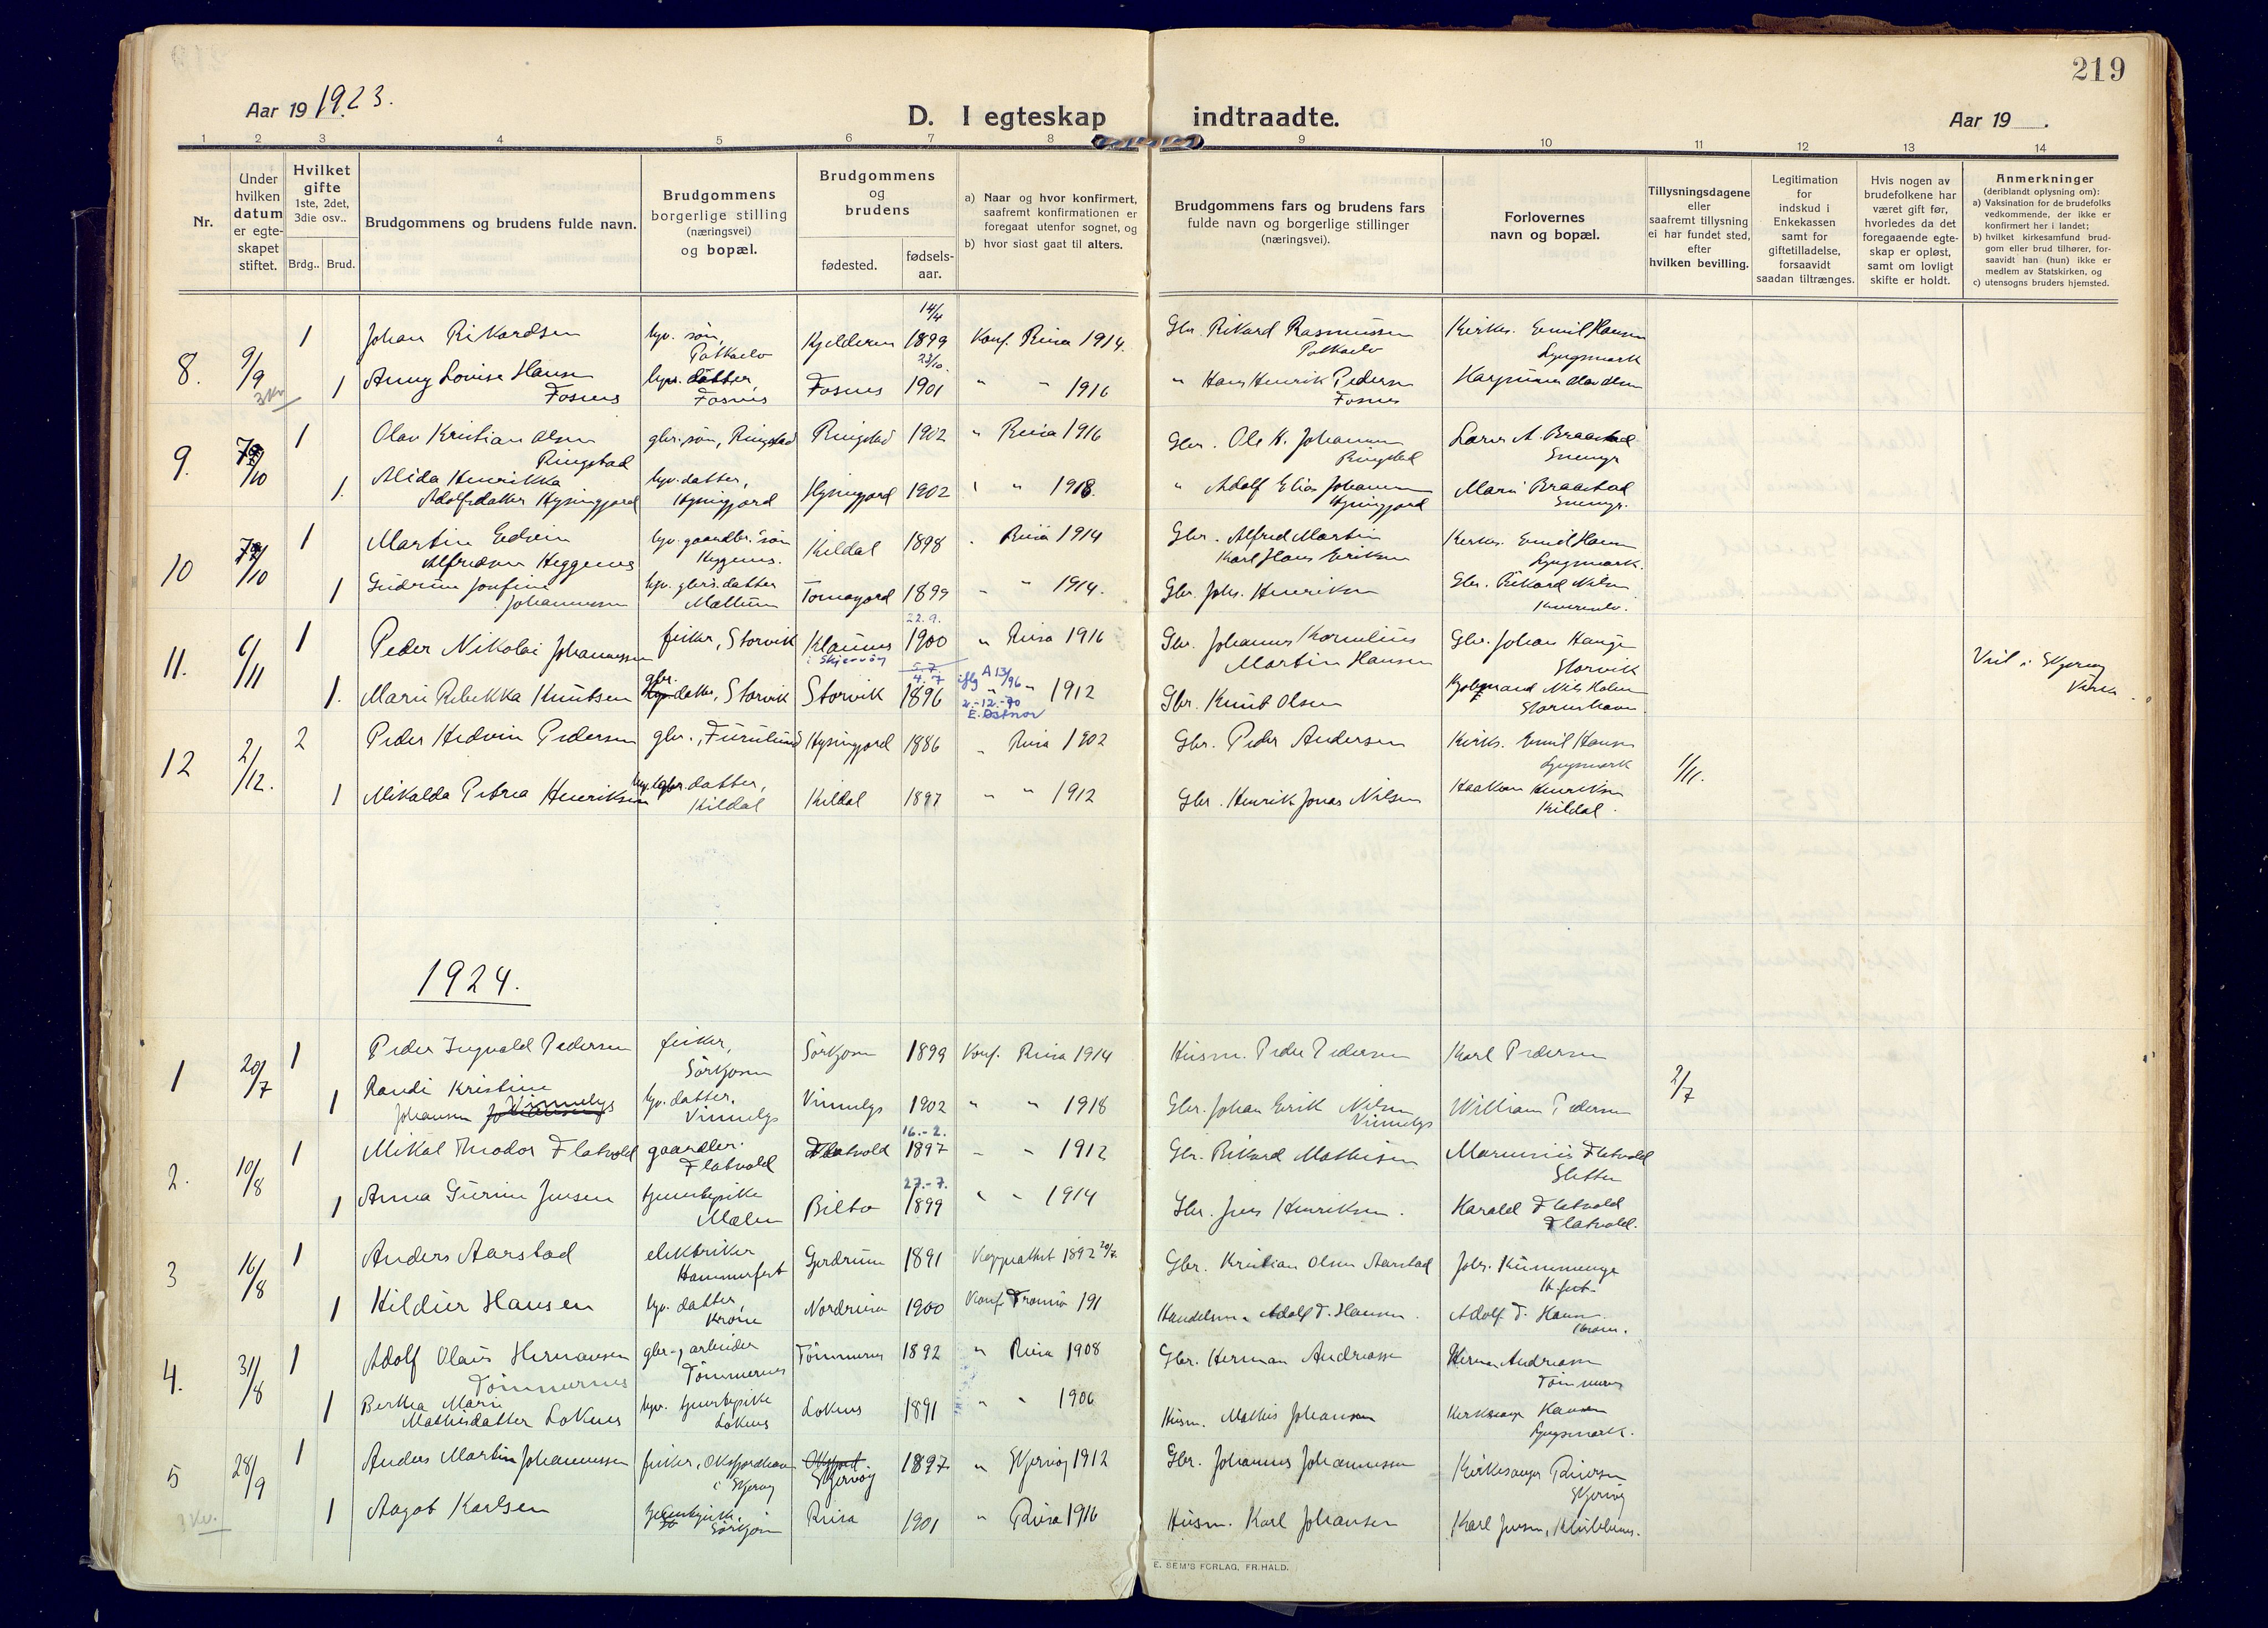 219
Aar 19 1923.
D. I egteskap indtraadte.
Aar 19 .
1 2 3 4 5 6 7 8 9 10 11 12 13 14
Nr.
Under hvilken datum er egteskapet stiftet.
Hvilket gifte 1ste, 2det, 3die osv..
Brdg.. Brud.
Brudgommens og brudens fulde navn.
Brudgommens borgerlige stilling (næringsvei) og bopæl.
Brudgommens og brudens
fødested. fødselsaar.
a) Naar og hvor konfirmert, saafremt konfirmationen er foregaat utenfor sognet, og
b) hvor sidst gaat til alters.
Brudgommens fars og brudens fars fulde navn og borgerlige stillinger (næringsvei).
Forlovernes navn og bopæl.
Tillysningsdagene eller saafremt tillysning ei har fundet sted, efter hvilken bevilling.
Legitimation for indskud i Enkekassen samt for giftetilladelse, forsaavidt saadan tiltrænges.
Hvis nogen av brudefolkene har været gift før, hvorledes da det foregaaende egteskap er opløst, samt om lovligt skifte er holdt.
Anmerkninger (deriblandt oplysning om):
a) Vaksination for de brudefolks vedkommende, der ikke er konfirmert her i landet;
b) hvilket kirkesamfund brudgom eller brud tilhører, forsaavidt han (hun) ikke er medlem av Statskirken, og
c) utensogns bruders hjemsted.
8. 9/9 1 Johan Rikardsen 14/4 Kjelderen 1899 Konf. Reisa 1914. Gbr. Rikard Rasmussen Kirkes. Emil Hansen
Lyngsmark
1 Anny Lovise Hansen Fosnes datter, Fosnes Fosnes 23/10. 1901 " " 1916 " Hans Henrik Pedersen Fosnes
9. /10 1 Olav Kristian Olsen Ringstad gbr. søn, Ringstad Ringstad 1902 " Reisa 1916 Gbr. Ole H. Johansen Ringstad Braastad
1. Alida Henrikka Adolfsdatter Hysingjord hjv. datter, Hysingjord Hysingjord 1902 " " 1918. " Adolf Elias Johansen Hysingjord Marie Braastad
10 /10 1 Martin Edvin Alfredsen Heggenes søn Heggenes. Kildal 1898 " Reisa 1914 Gbr. Alfred Martin Karl Hans Eriksen Kirkes. Emil Hansen Lyngsmark.
1 Gudrun Jonfine Johannessen hjv. gbrs. datter 1899 " " 1914. Gbr. Johs. Henriksen Gbr. Rikard Nilsen
11. 6/11 1 Peder Nikolai Johannessen fisker, Storvik Klaunes i Skjervøy 22.9. 1900 " Reisa 1916 Gbr. Johannes Kornelius Martin Hansen Gbr. Johan Hauge Storvik
Viet i Skjervøy Kirke
1. Marie Rebekka Knutsen gbr. datter, Storvik Storvik 5.7 4.7 1896 iflg A 13/96 " " 1912 2.-12.-70 E. Østmor Gbr. Knut Olsen
12 2/12. 2 Peder Hedvin Pedersen gbr., Furulund Hysingjord 1886 " Reisa 1902 Gbr. Peder Andersen Kirkes. Emil Hansen Lyngsmark 1/11.
1 Mikalda Petrea Henriksen datter, Kildal Kildal 1897 " " 1912 Gbr. Henrik Jonas Nilsen Haakon Henriksen Kildal.
1924.
1 20/7 1 Peder Ingvald Pedersen fisker, Sørkjosen Sørkjosen 1899 Konf. Reisa 1914 Husm. Peder Pedersen Karl Pedersen 2/7
1 Randi Kristine Johansen Vinnelys hjv. datter, Vinnelys Vinnelys 1902 " " 1918 Gbr. Johan Erik Nilsen Vinnelys William Pedersen
2. 10/8 1 Mikal Theodor Flatvold gaardbr. Flatvold Flatvold 16.-2. 1897 " " 1912 Gbr. Rikard Mathisen Marenius Flatvold Sletten
1 Anna Gurine Jensen tjenestepike Bilto 27.-7. 1899 " " 1914 Gbr. Jens Henriksen. Harald Flatvold Flatvold.
3 16/8 1 Anders Aarstad elektriker Hammerfest Gjerdrum 1891 Koppeattest 1892 Gbr. Kristian Olsen Aarstad Johs. Kummenje H.fest
1 Hildur Hansen hjv. datter, Nordreisa 1900 Konf. Tromsø 191 Handelsm. Adolf T. Hansen. Adolf T. Hansen
4. 31/8 1 Adolf Olaus Hermansen Tømmernes gbr., arbeider Tømmernes Tømmernes 1892 " Reisa 1908 Gbr. Herman Andreassen Herman Andreassen Tømmernes
1 Bertha Marie Mathisdatter Loknes hjv. tjenestepike Loknes Loknes 1891 " " 1906 Husm. Mathis Johansen Kirkesanger Hansen Lyngsmark.
5 28/9 1 Anders Martin Johannessen fisker, i Skjervøy Skjervøy 1897 " Skjervøy 1912 Gbr. Johannes Johannessen Kirkesanger Skjervøy
1 Aagot Karlsen Sørkjosen Reisa 1901 " Reisa 1916 Husm. Karl Johansen Karl Jensen,
E. SEM'S FORLAG, FR.HALD.